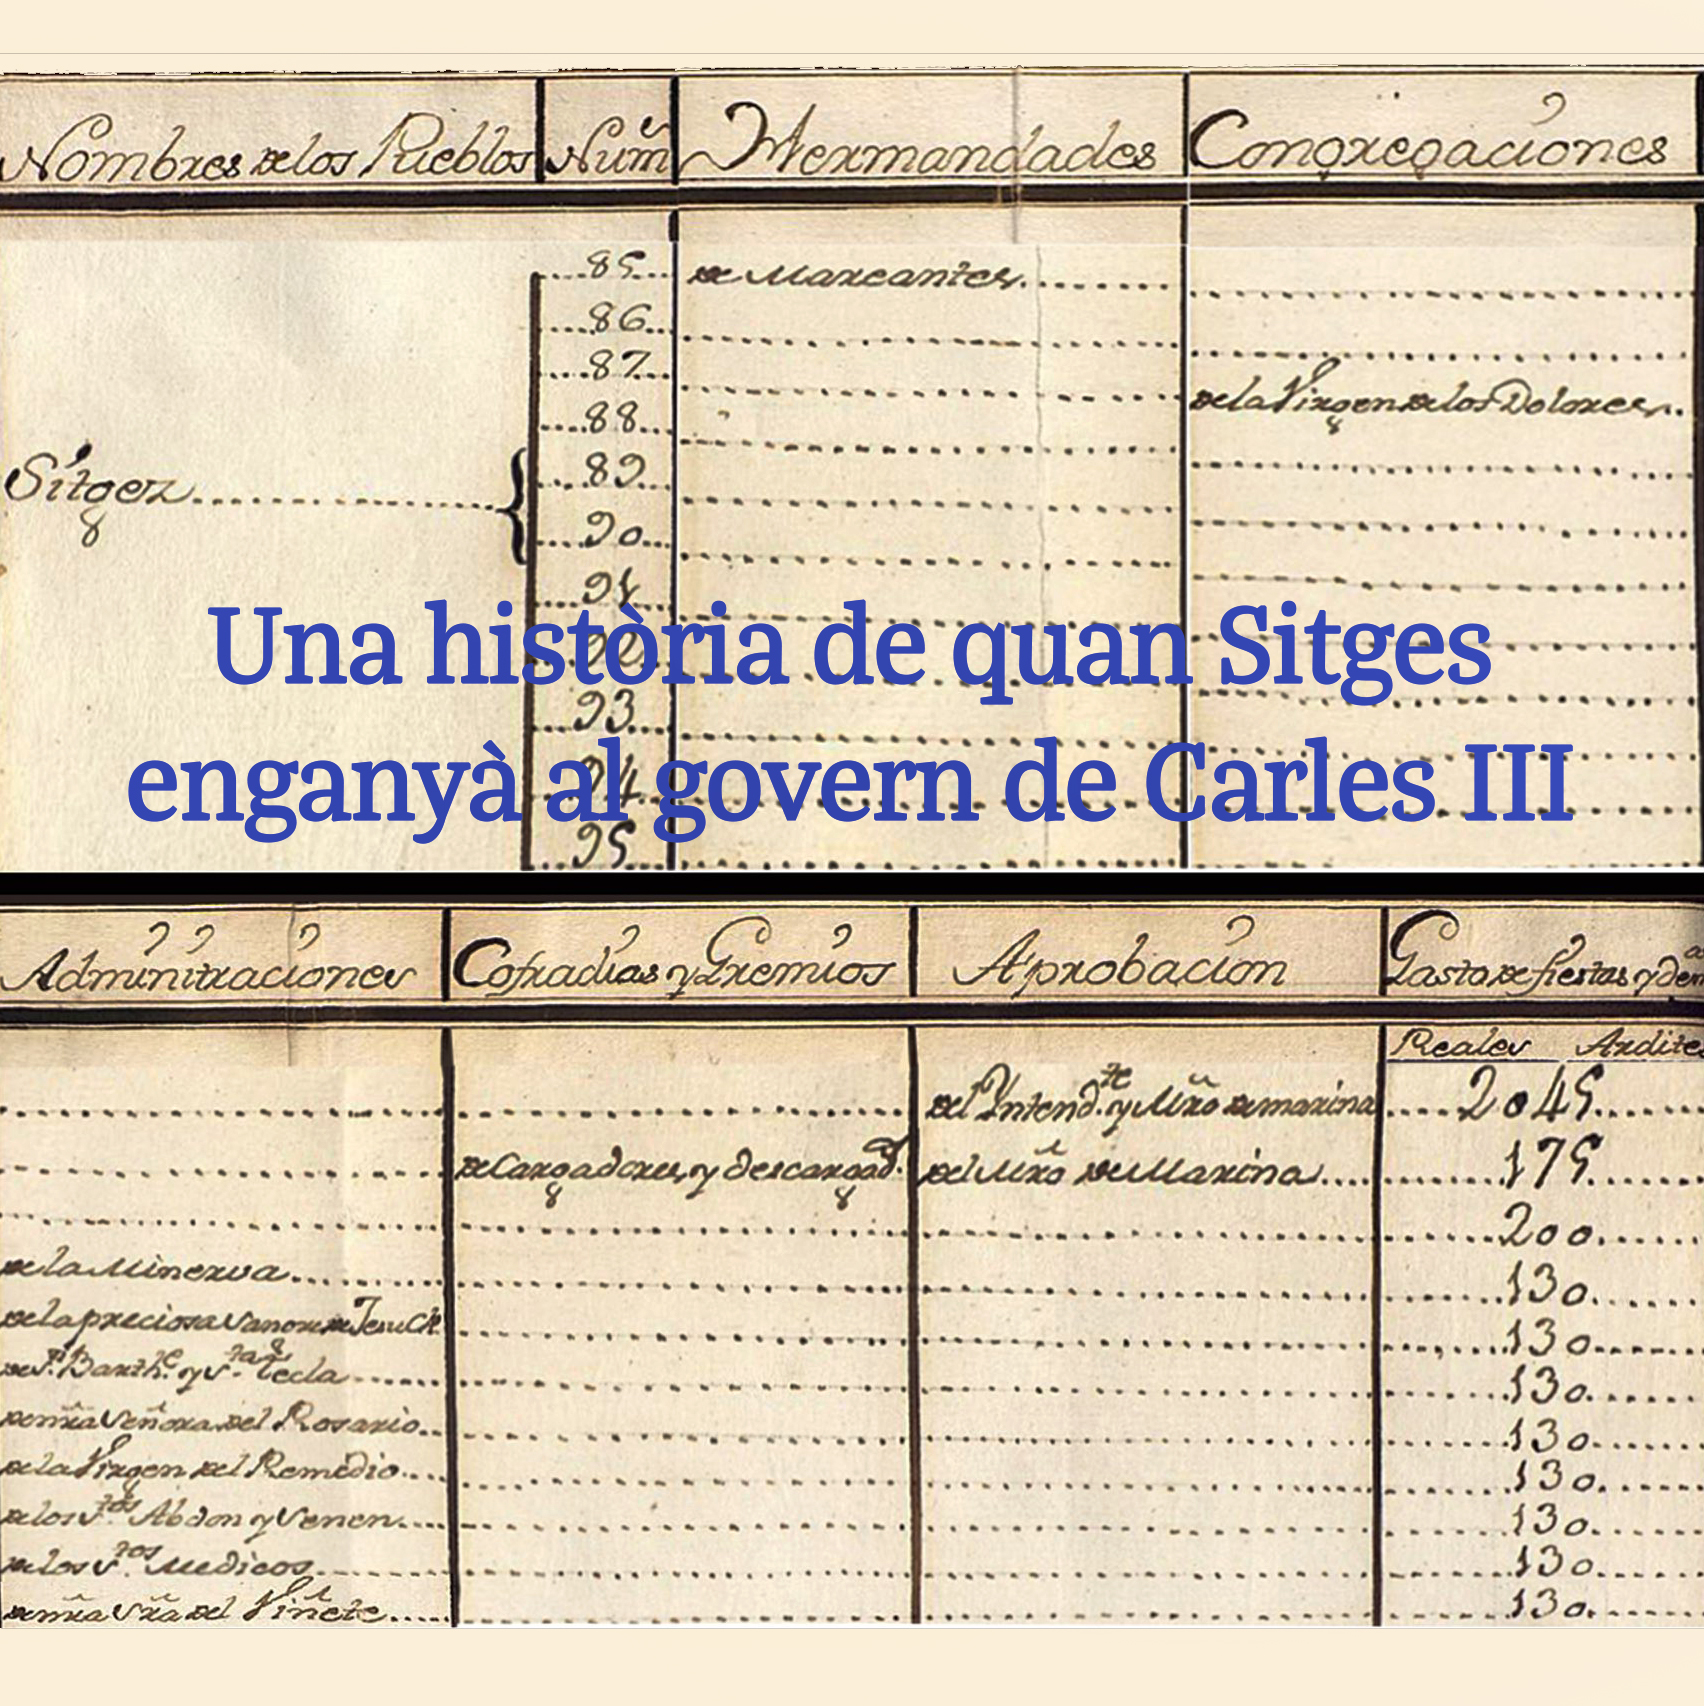 Nombres de los Pueblos Num Hermandades Congregaciones
85 de Mareantes
86
87 de la Virgen de los Dolores
88
Sitgez 89
90
91
92
Una història de quan Sitges
93
enganyà al govern de Carles III
94
95
Administraciones Cofradias y Gremios Aprobacion Gasto de fiestas y dem
Reales Ardites
del Intend.te y Mro de marina 2045
de Cargadores, y descargad. del Mro de Marina 175
200
de la Minerva 130
de la preciosa Sangre de Jesu Ch. 130
de S. Barth.e y S.ta Tecla 130
de nra Señora del Rosario 130
de la Virgen del Remedio 130
de los S.tos Abdon y Senen 130
de los S.tos Medicos 130
de nra Sra del Viñete 130